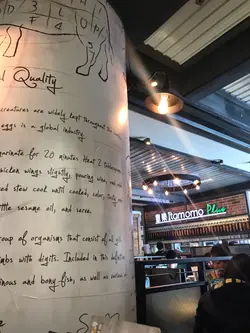 Quality
creatures are widely kept throughout the
eggs is a global industry.
marinate for 20 minutes. Heat 2 tablespoons
chicken wings slightly, pouring wine, and
stew cook until cooled, color,
little sesame oil, and serve.
group of organisms that consist of all
limbs with digits. Included in this definition
and bony fish, as well as
itamomo Plus